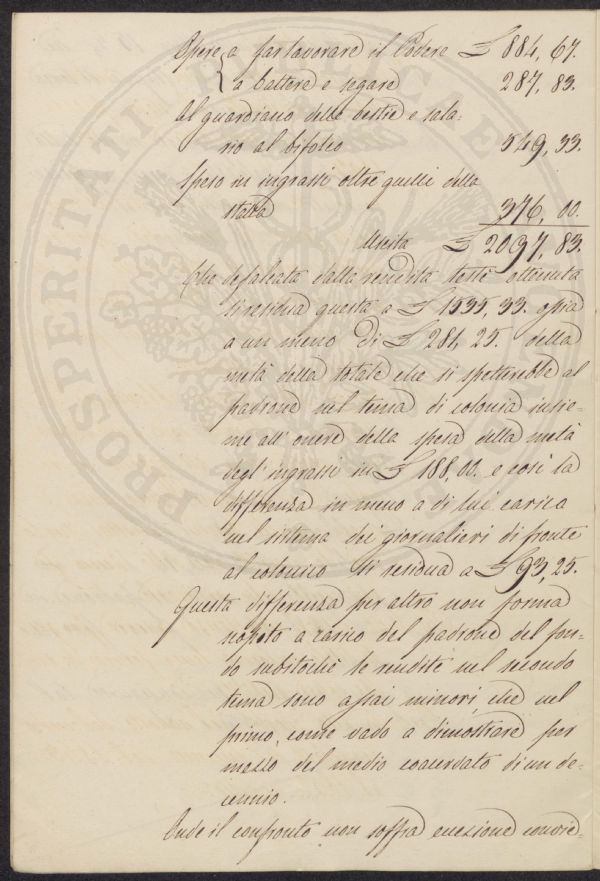 Opere a far lavorare il Podere £ 884, 67.
a battere e segare 287, 83.
Al guardiano delle bestie e sala-
rio al bifolco 549, 33.
Speso in ingrassi oltre quelli della
stalla 376, 00.
Uscita £ 2097, 83.
Che defalcata dalla rendita teste ottenuta
si residua questa a £ 1535, 33. ossia
a un meno di £ 281, 25. della
metà della totale che si spetterebbe al
padrone nel tema di colonia insie-
me all' onere della spesa della metà
degl' ingrassi in £ 188, 00. e così la
differenza in meno a di lui carico
nel sistema dei giornalieri di fronte
al colonico si residua a £ 93, 25.
Questa differenza per altro non forma
a carico del padrone del fon-
do subitochè le rendite nel secondo
tema sono assai minori, che nel
primo, come vado a dimostrare per
mezzo del medio coacervato di un de-
cennio.
Onde il confronto non soffra eccezione convie-
PROSPERITATI PUBLICAE